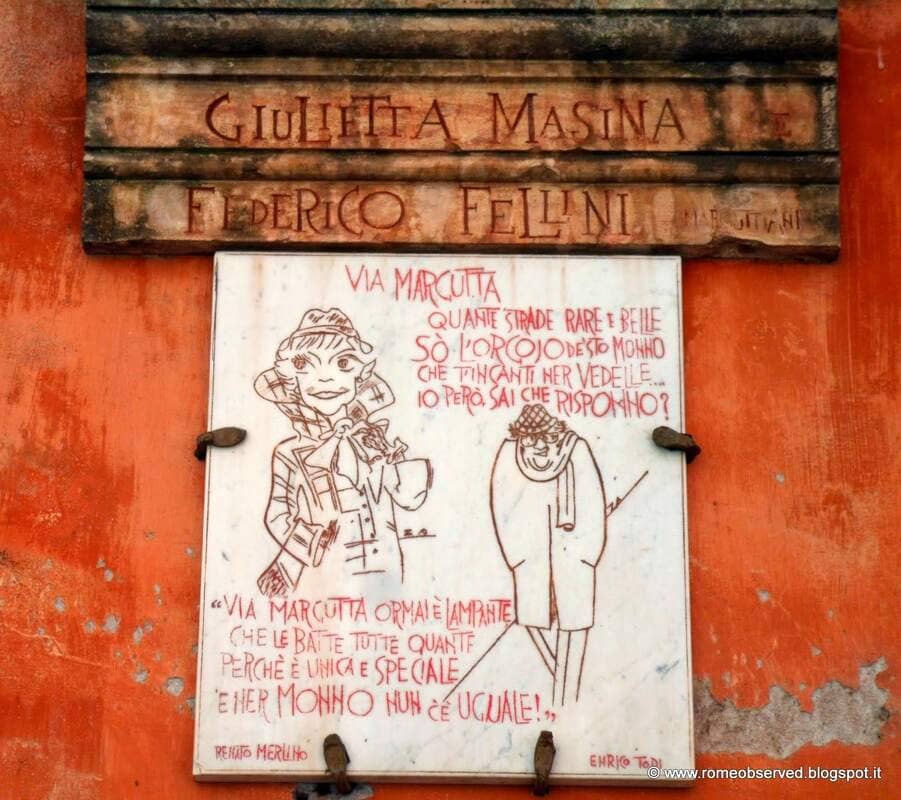 GIULIETTA MASINA E
FEDERICO FELLINI MARGUTTIANI
VIA MARGUTTA
QUANTE STRADE RARE E BELLE
SÒ L'ORGOJO DE'STO MONNO
CHE T'INCANTI NER VEDELLE...
IO PERÒ, SAI CHE RISPONNO?
"VIA MARGUTTA ORMAI È LAMPANTE
CHE LE BATTE TUTTE QUANTE
PERCHÈ È UNICA E SPECIALE
E NER MONNO NUN C'È UGUALE!"
RENATO MERLINO
ENRICO TODI
© www.romeobserved.blogspot.it